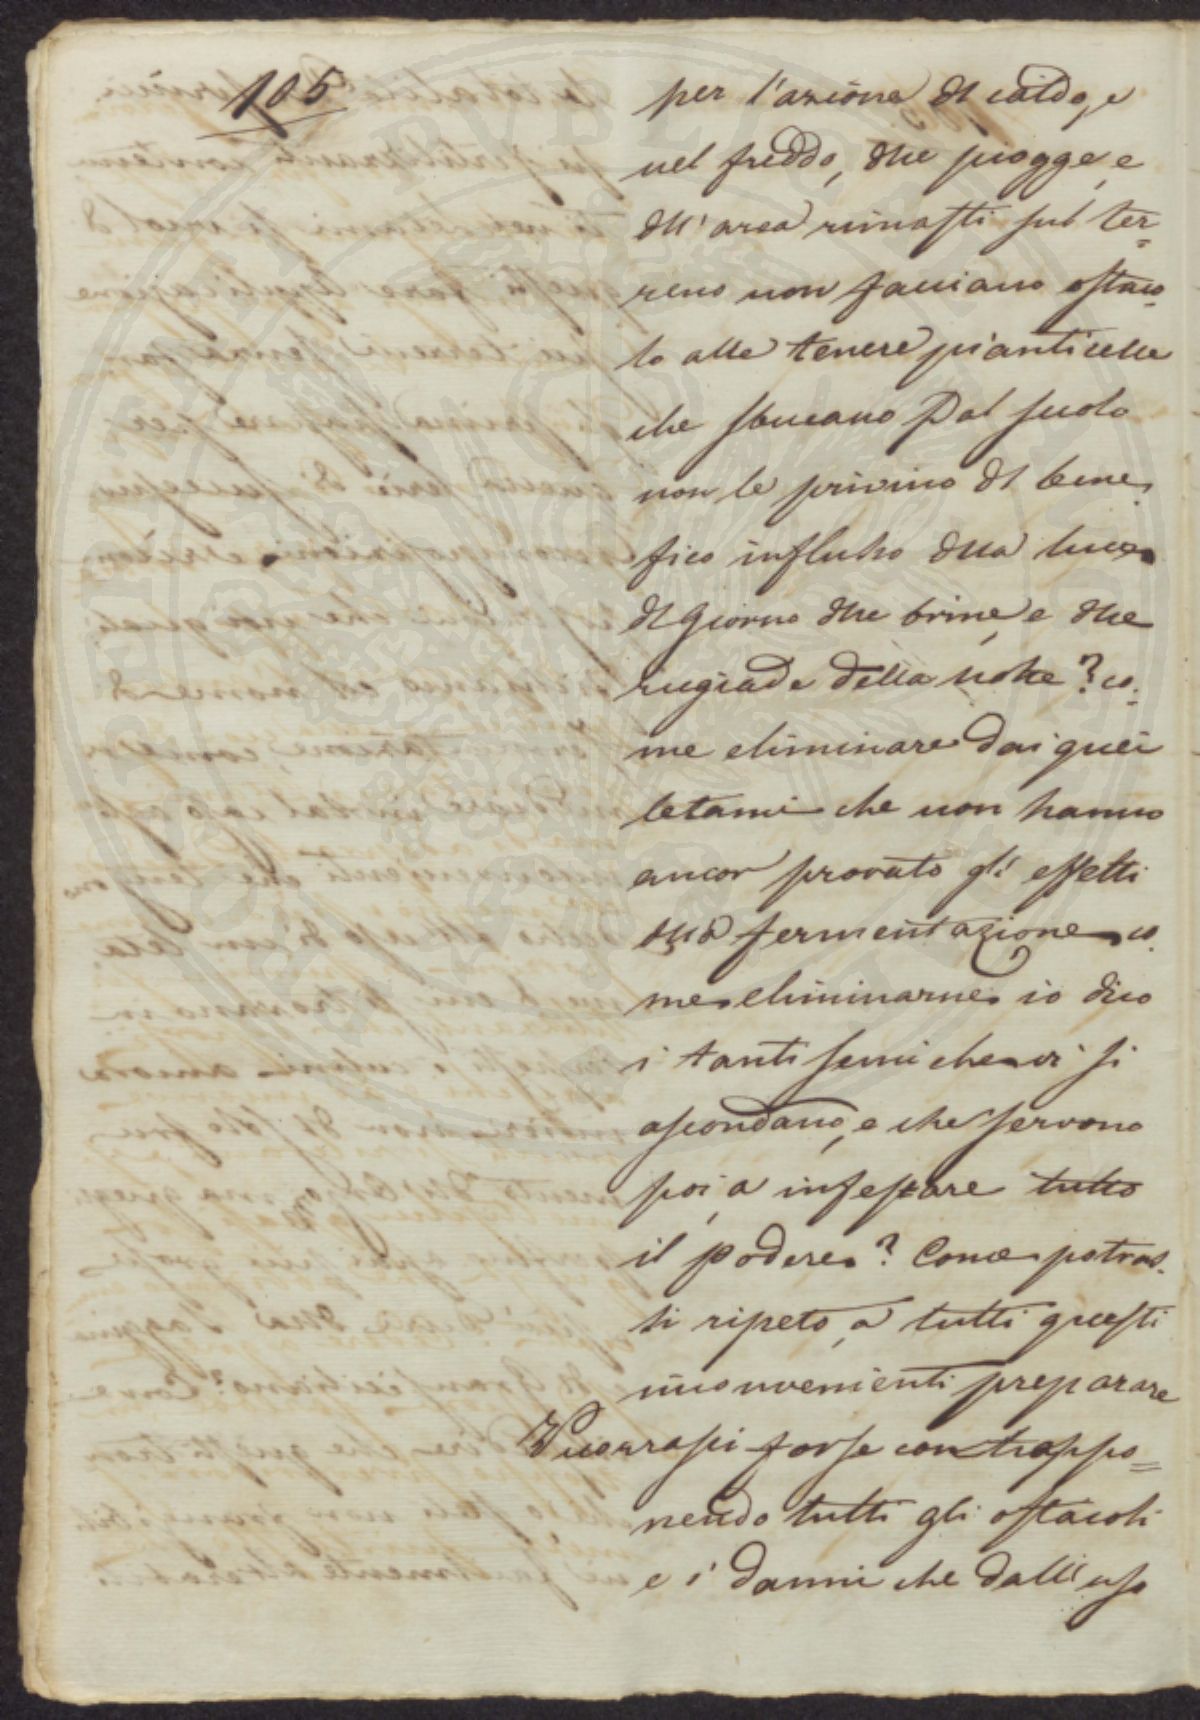 105
per l'azione del caldo, e
nel freddo, delle piogge, e
dell'area rimasti sul ter=
reno non facciano ostaco=
lo alle tenere pianticelle
che sbucano dal suolo
non le privino del bene
fico influsso della luce
del giorno delle brine, e delle
rugiade della notte? co=
me eliminare dai quei
letami che non hanno
ancor provato gli effetti
della fermentazione co
me eliminarne io dico
i tanti semi che vi si
ascondano, e che servono
poi, a infestare tutto
il podere? Come potras=
si ripeto, a tutti questi
inconvenienti preparare
Vuorrassi forse contrappo=
nendo tutti gli ostacoli
e i danni che dall'uso